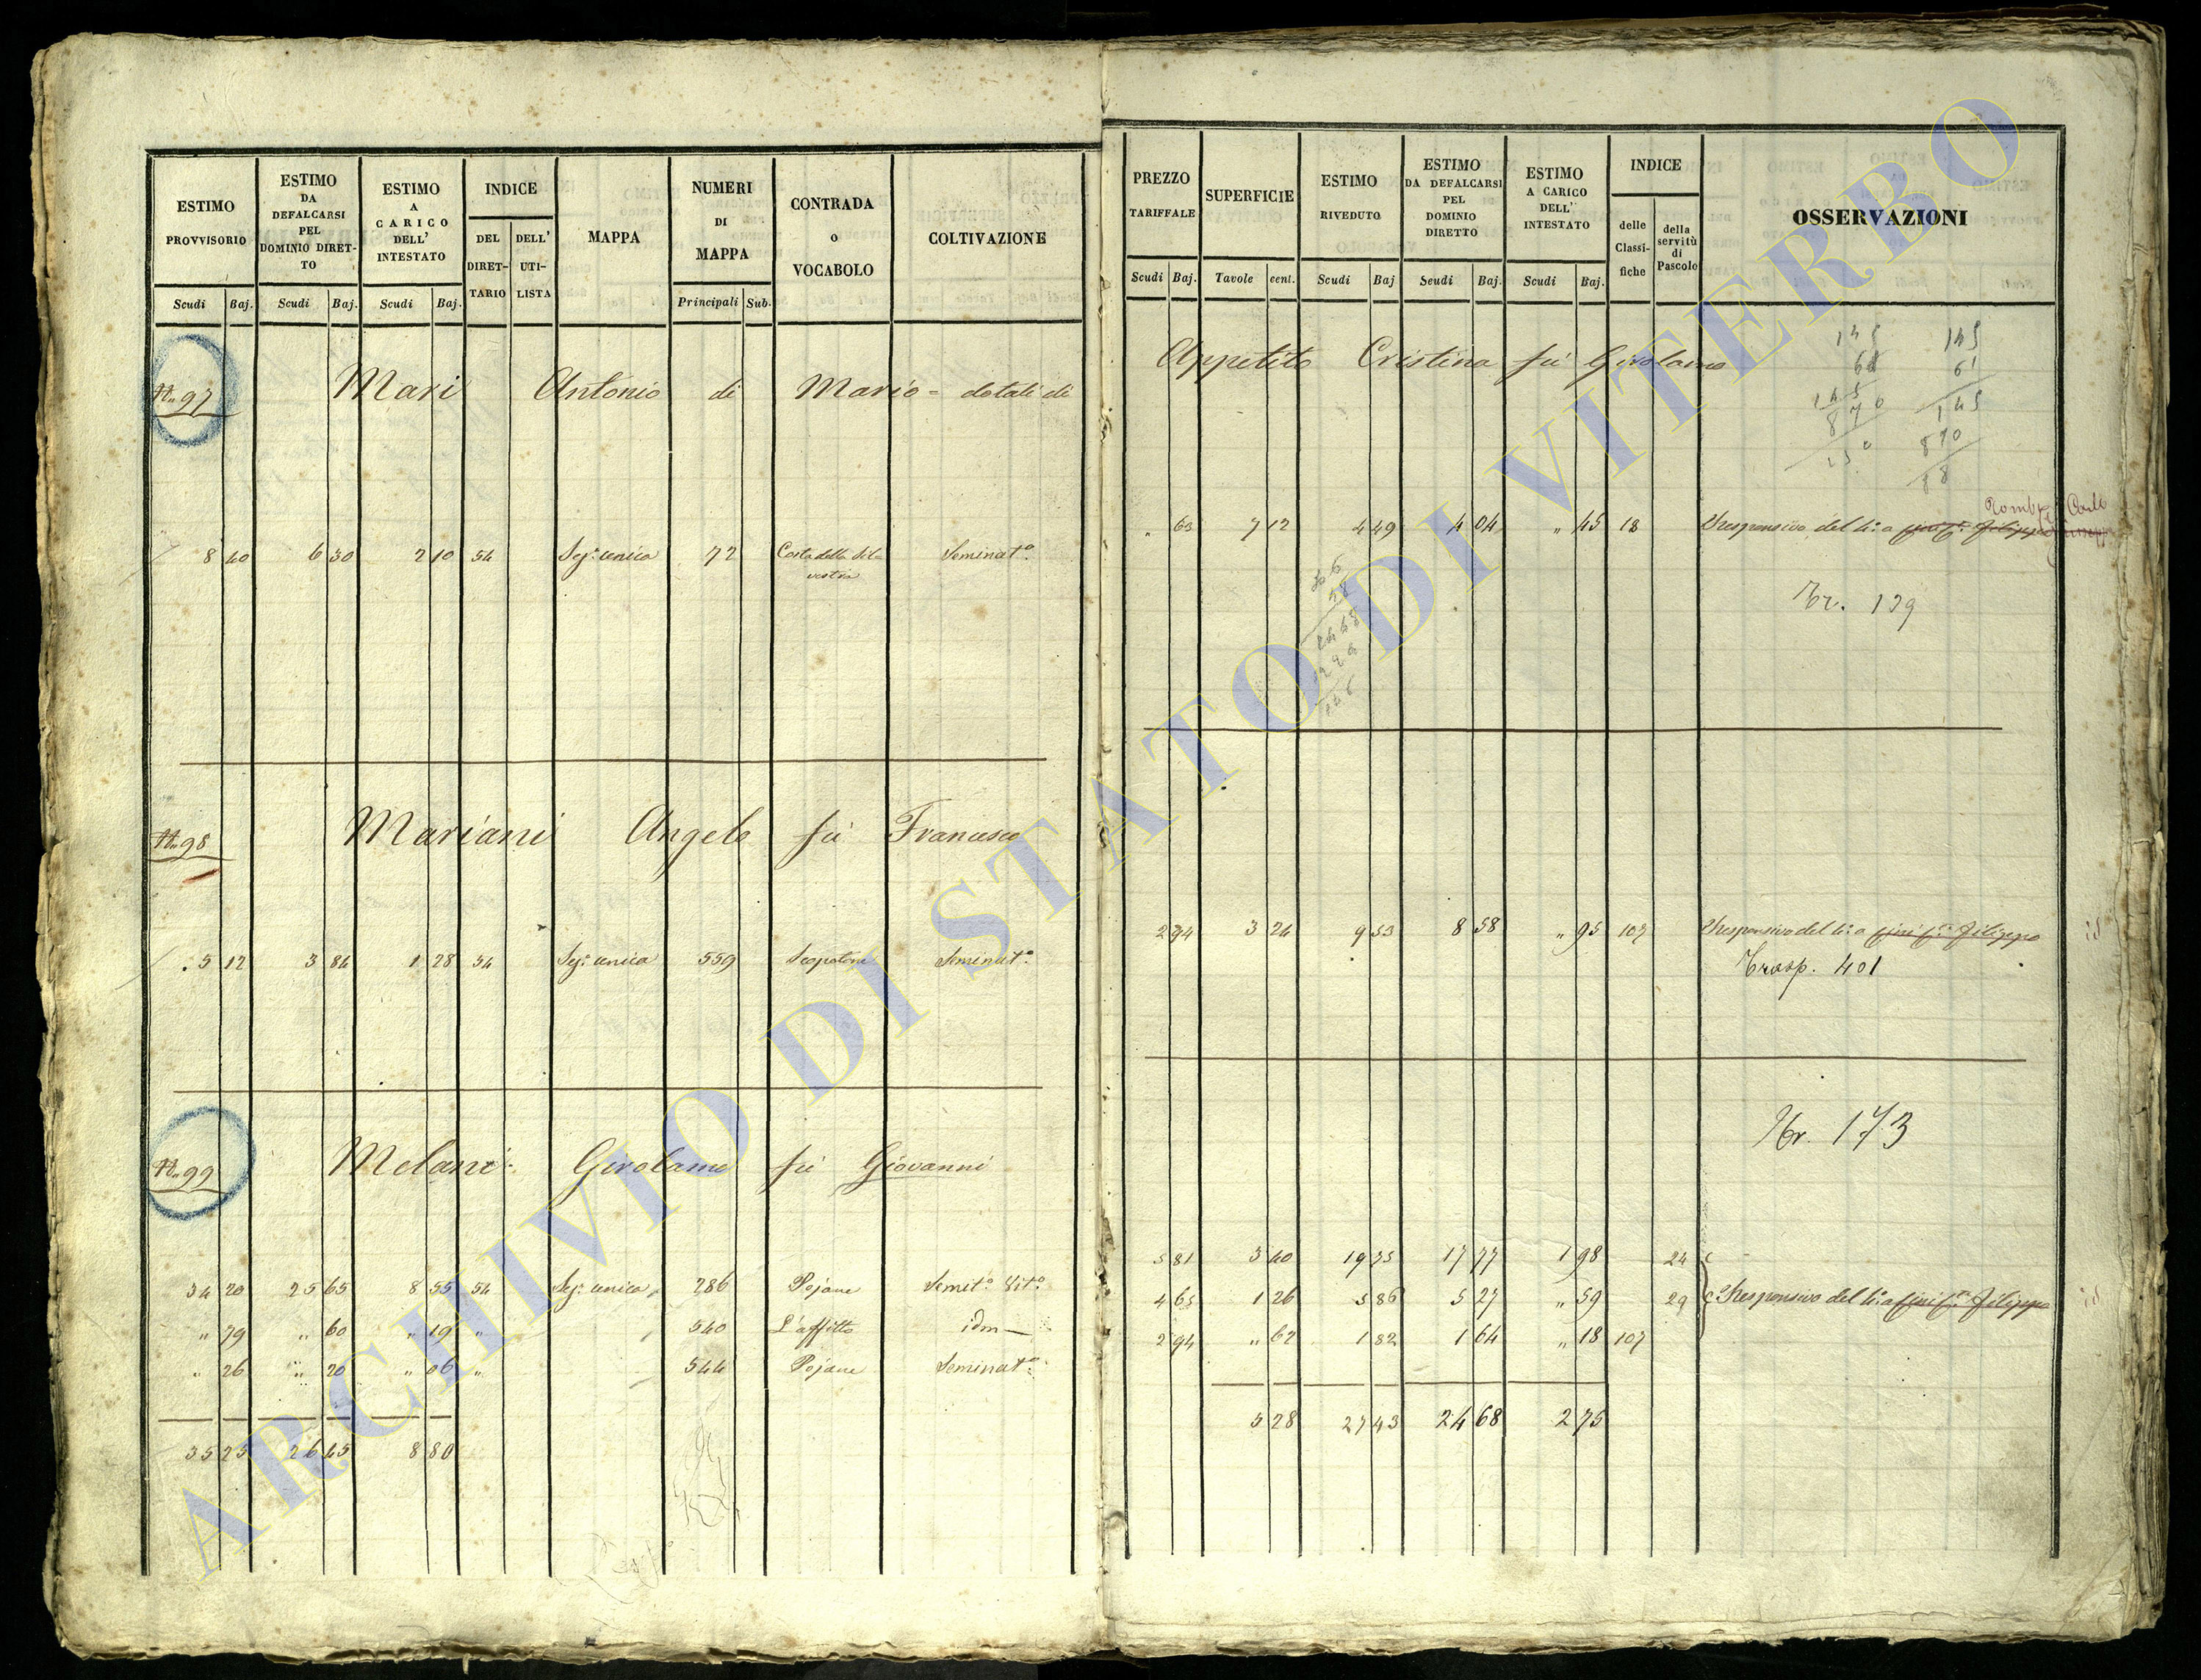 ESTIMO PROVVISORIO
ESTIMO DA DEFALCARSI PEL DOMINIO DIRETTO
ESTIMO A CARICO DELL' INTESTATO
INDICE
DEL DIRETTARIO
DELL' UTILISTA
MAPPA
NUMERI DI MAPPA
CONTRADA o VOCABOLO
COLTIVAZIONE
Scudi Baj. Scudi Baj. Scudi Baj. Principali Sub.
N.. 97 Mari Antonio di Mario = dotali di
8 40 6 30 2 10 54 Sez.e unica 72 Seminat.o
N.. 98 Mariani Angelo fù Francesco
5 12 3 84 1 28 54 Sez.e unica 559 Scopatone Seminat.o
N.. 99 Melani Girolamo fù Giovanni
34 20 25 65 8 55 54 Sez.e unica 286 Pojane Semit.o Vit.o
" 79 " 60 " 19 " 540 L'affitto idm
" 26 " 20 " 06 " 544 Pojane Seminat.o
35 25 26 45 8 80
PREZZO TARIFFALE
SUPERFICIE
ESTIMO RIVEDUTO
ESTIMO DA DEFALCARSI PEL DOMINIO DIRETTO
ESTIMO A CARICO DELL' INTESTATO
INDICE
delle Classifiche
della servitù di Pascolo
OSSERVAZIONI
Scudi Baj. Tavole cent. Scudi Baj Scudi Baj. Scudi Baj.
Appetito Cristina fù Girolamo
145 145
61 61
145 145
870 870
" 63 7 12 4 49 4 04 " 45 18 Responsivo del 4:o a
Tr. 139
2 94 3 24 9 53 8 58 " 95 107 Responsivo del 4:o a fini f.li Filippo id
Trasp. 401
Tr. 173
5 81 3 40 19 75 17 77 1 98 24
4 65 1 26 5 86 5 27 " 59 29 Responsivo del 4:o a fini f.li Filippo id
2 94 " 62 1 82 1 64 " 18 107
5 28 27 43 24 68 2 75
ARCHIVIO DI STATO DI VITERBO